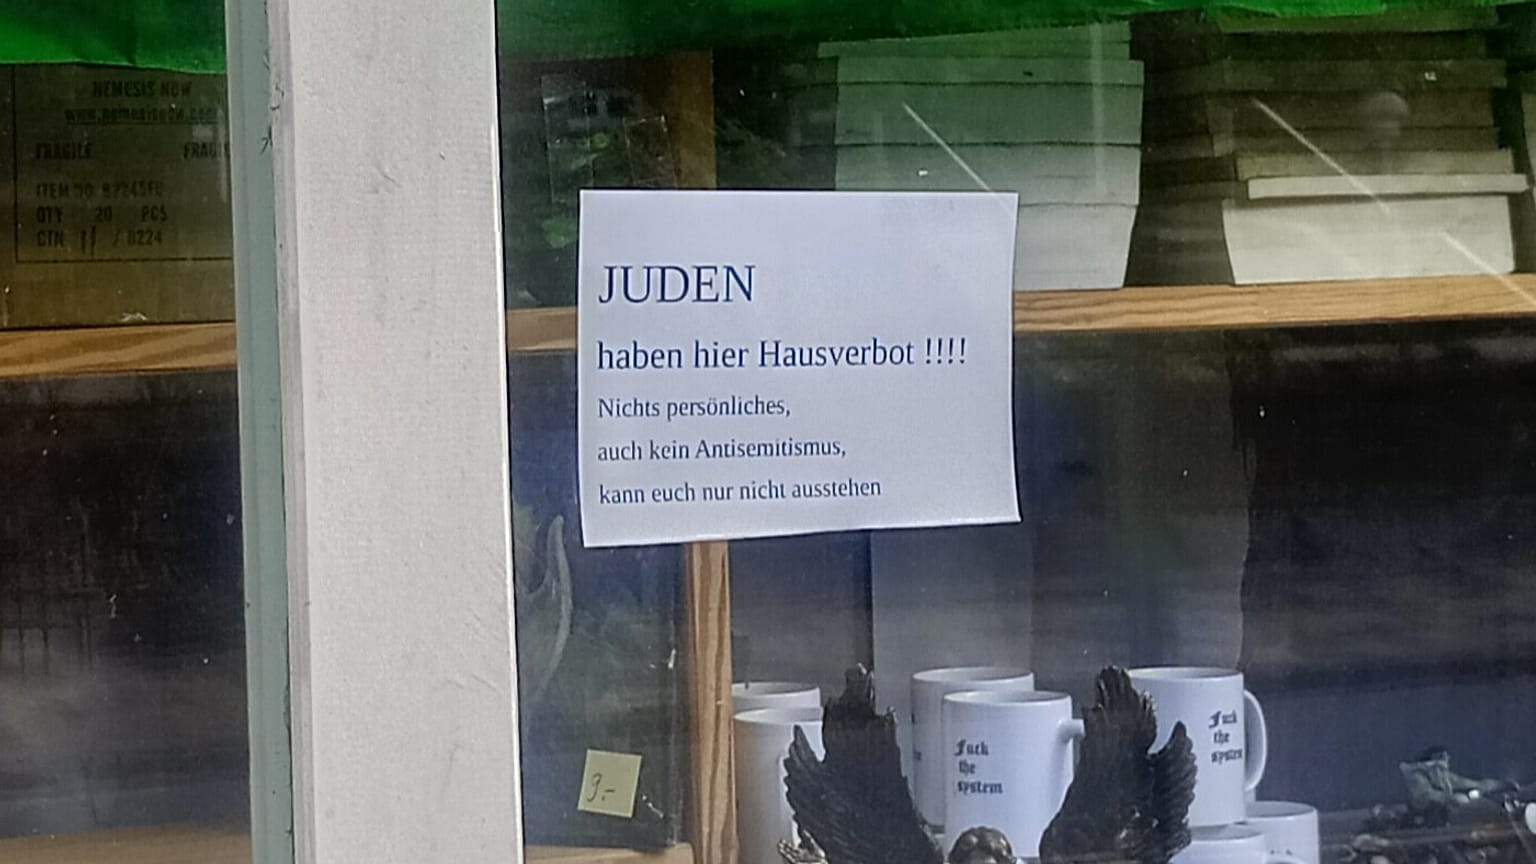 NEMESIS NOW
www.nemesisnow.com
FRAGILE
ITEM NO
QTY 20 PCS
CTN / 0224
JUDEN
haben hier Hausverbot !!!!
Nichts persönliches,
auch kein Antisemitismus,
kann euch nur nicht ausstehen
9.-
Fuck
the
system
Fuck
the
system